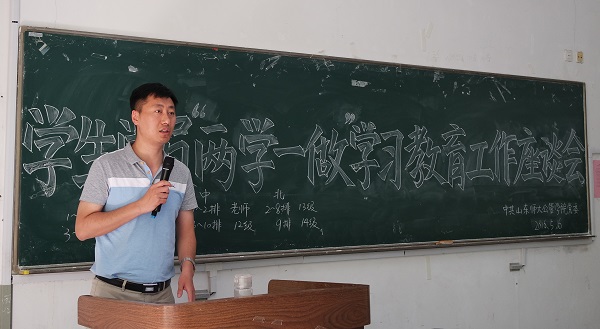 学生党员“两学一做”学习教育工作座谈会
中 北
2排 老师 2~8排 13级
~10排 12级 9排 14级
中共山东师大公管学院党委